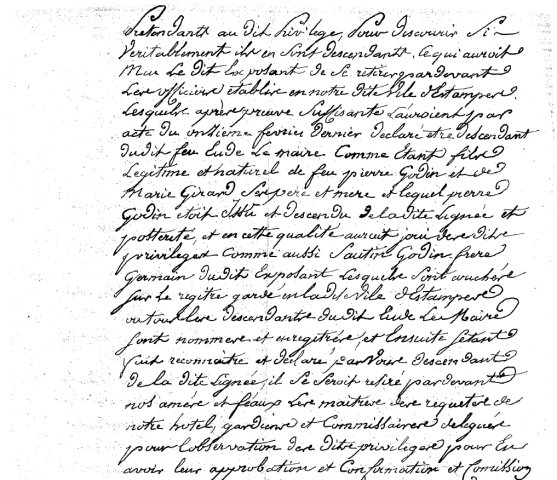 Pretendants au dit Privilege, Pour descouvrir Si
Veritablement ils en Sont descendants. Ce qui auroit
Mue Le dit Exposant de Se retirer pardevant
Les officiers établis en notre dite Ville d'Estampes.
Lesquels après preuve Suffisante L'auroient par
acte du onsieme fevrier dernier declaré etre descendant
dudit feu Eude Le maire Comme Etant fils
Legitime et naturel de feu pierre Godin et de
Marie Girard Ses pere et mere et lequel pierre
Godin etoit Issu et descendu de la dite Lignée et
posterité, et en cette qualité auroit joui des dits
privileges Comme aussi Godin frere
Germain dudit Exposant Lesquels Sont
Sur Le regitre gardé en la dite Ville d'Estampes
ou tous Les descendants dudit Eude Le Maire
Sont nommes et enregitrés, et Ensuite S'étant
fait reconnoitre et declaré, par Voire descendant
de la dite Lignée, il Se Seroit retiré pardevant
nos amés et féaux Les maitres des requetes de
notre hotel, gardiens et Commissaires delegués
pour L'observation des dits privileges pour En
avoir leur approbation et Confirmation et Comission